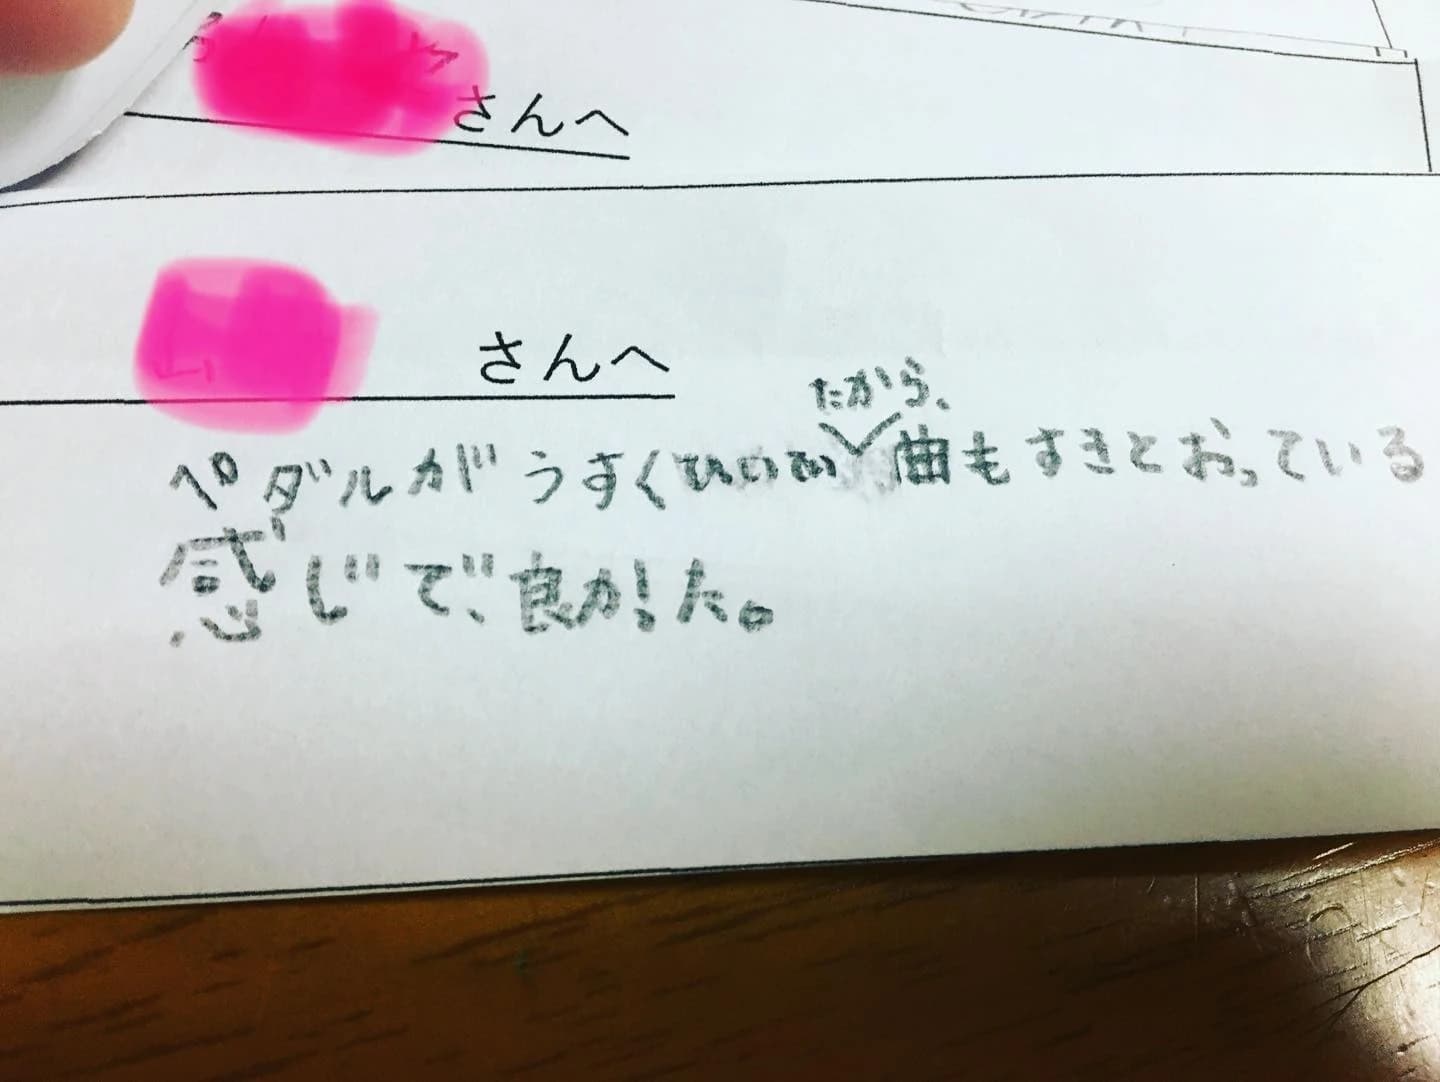 さんへ
さんへ
たから、
ペダルがうすくひいてい 曲もすきとおっている
感じで、良かった。